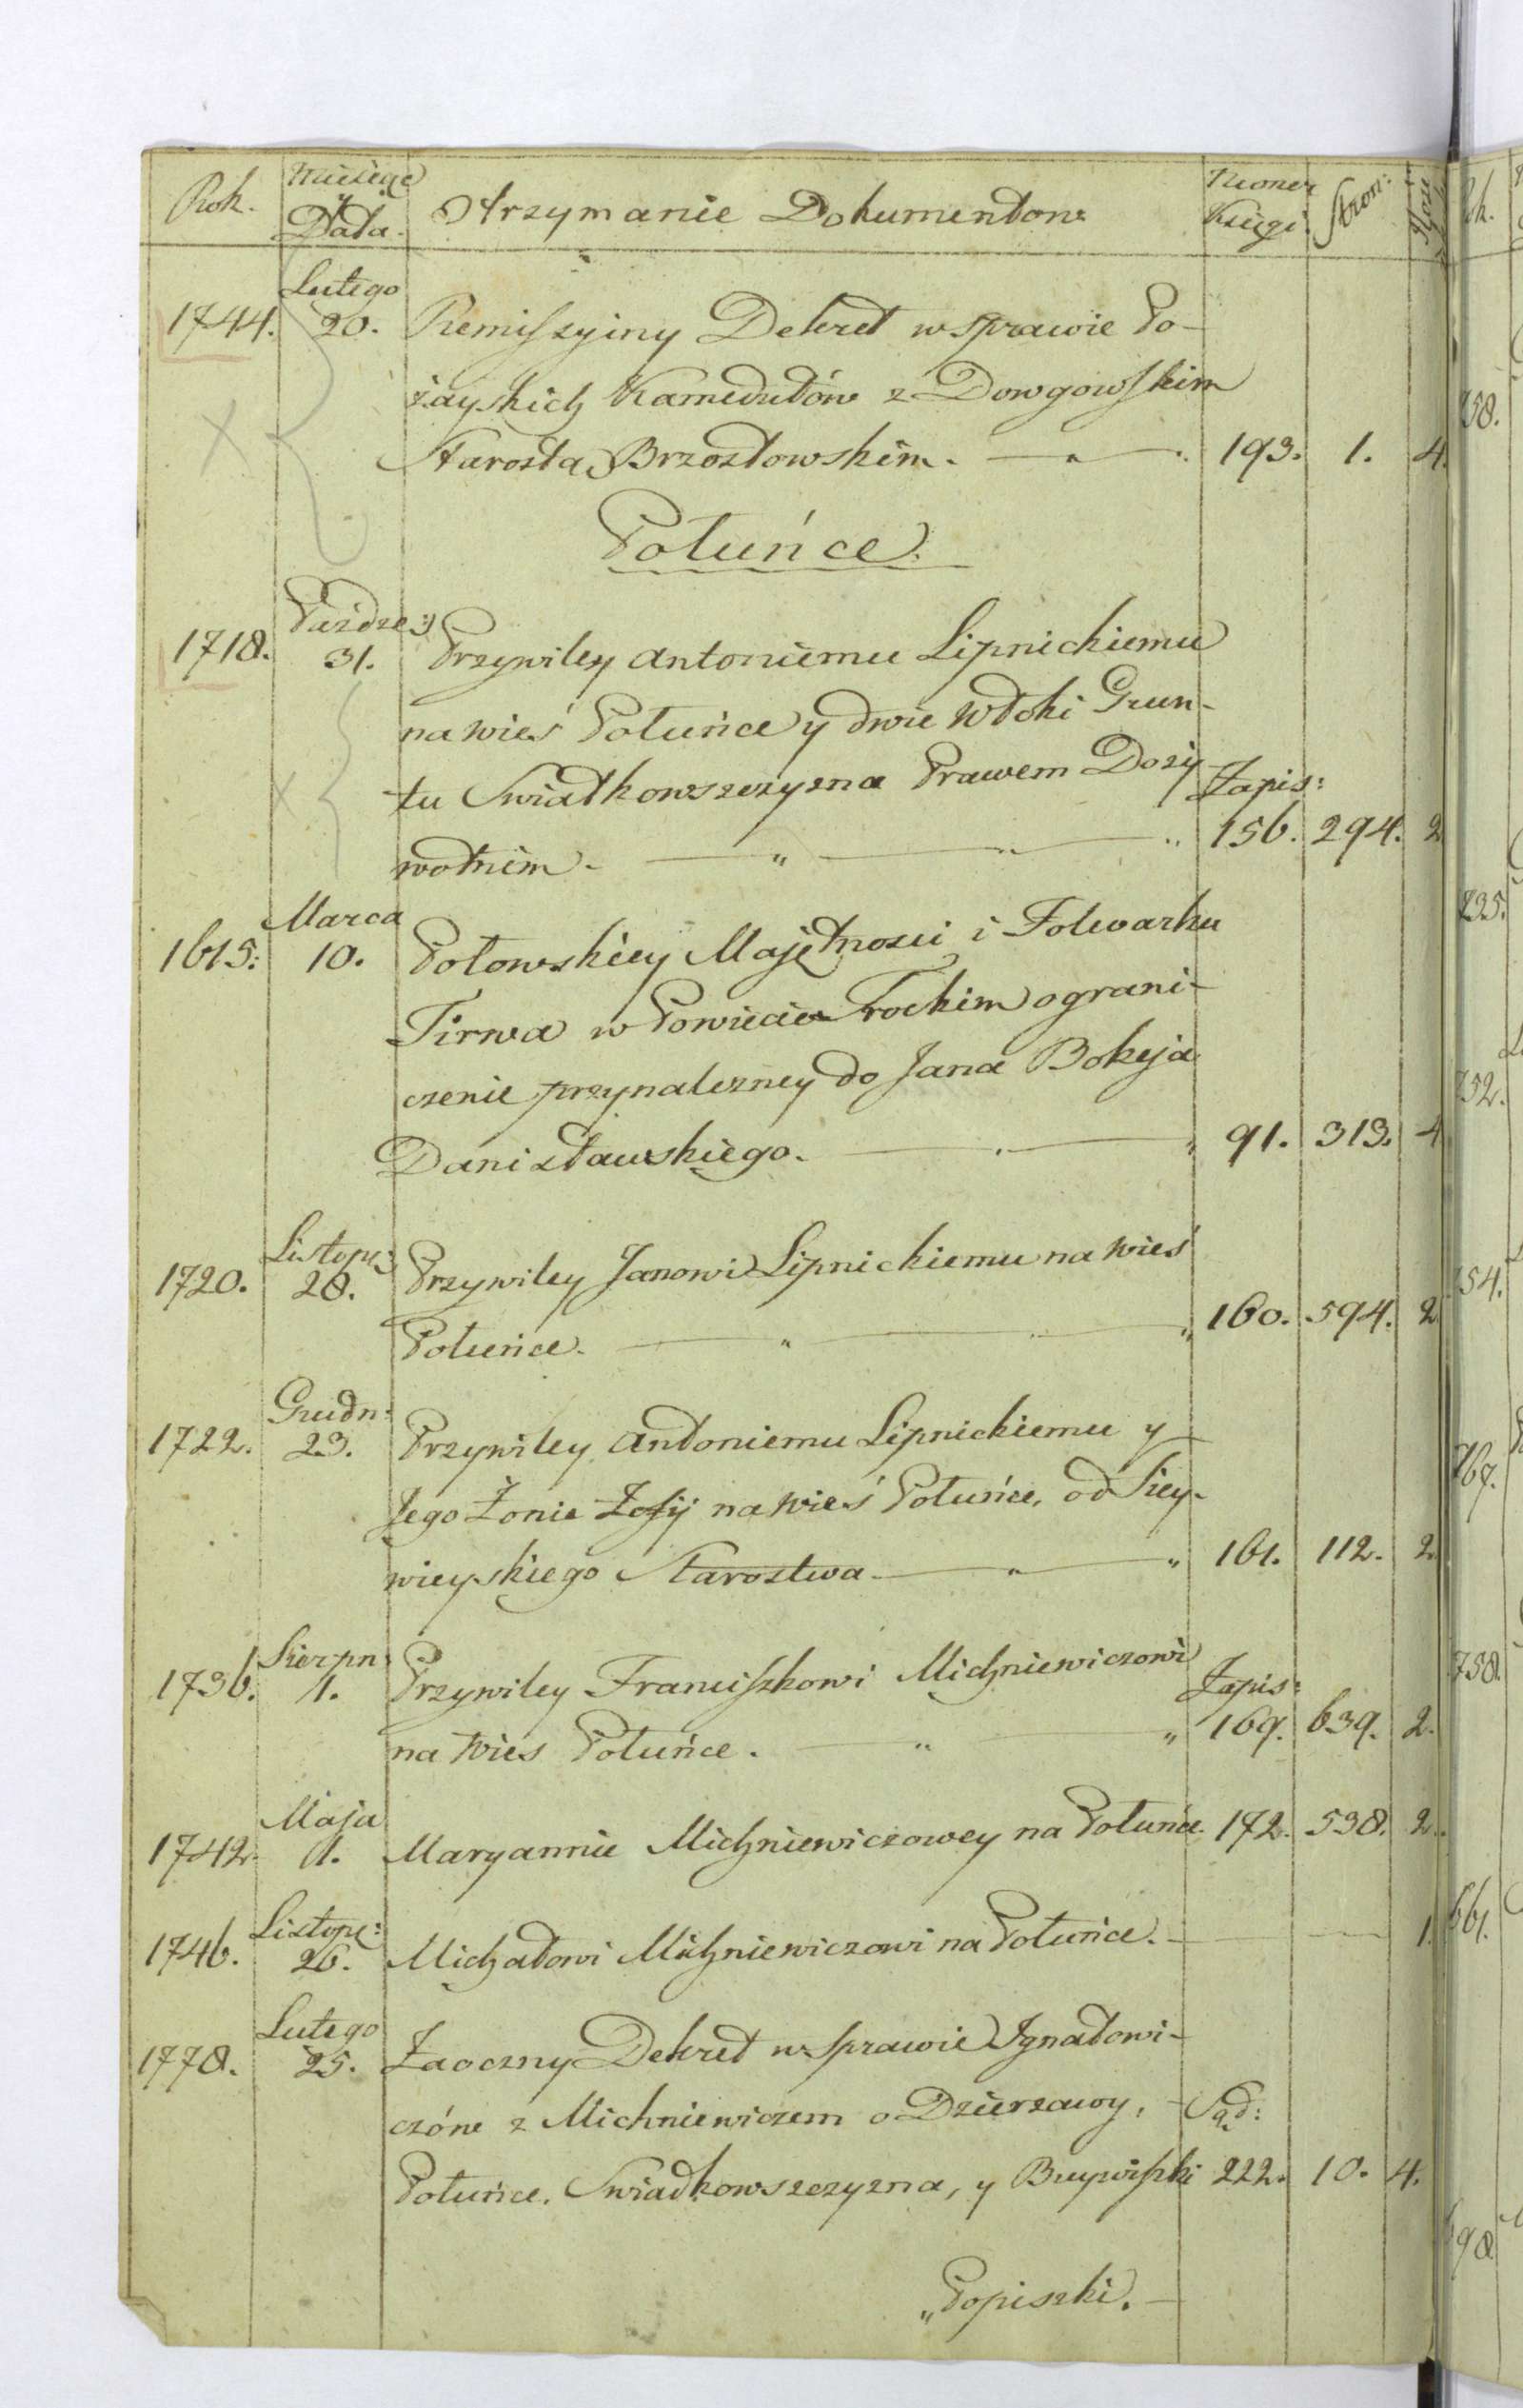 Rok. Miesiąc y Data. Otrzymanie Dokumentow Numer Księgi Stron:
Lutego
1744. 20. Remiszyiny Dekret w sprawie Po-
żayskich Kamedułów z Dowgowskim
Starostą Brzostowskim. 193. 1. 4.
Połuńce.
Paźdze:
1718. 31. Przywiley Antoniemu Lipnickiemu
na wieś Połuńce y dwie Włoki Grun-
tu Swiatkowszczyzna Prawem Doży Zapis:
wotnim. 156. 294. 2
Marca
1615: 10. Połowskiey Majętnosci i Folwarku
Tirwa w Powiecie Trockim ograni-
czenie przynalezney do Jana Bokeja
Danisławskiego. 91. 313. 4
Listop:
1720. 28. Przywiley Janowi Lipnickiemu na wieś
Połuńce. 160. 594. 2
Grudn:
1722. 23. Przywiley Antoniemu Lipnickiemu y
Jego Żonie Zofij na wieś Połuńce, od Siey-
wieyskiego Starostwa. 161. 112. 2
Sierpn:
1736. 1. Przywiley Franciszkowi Michniewiczowi Zapis:
na wies Połuńce. 169. 639. 2.
Maja
1742. 1. Maryannie Michniewiczowey na Połuńce. 172. 538. 2.
Listop:
1746. 26. Michałowi Michniewiczowi na Połuńce. 1.
Lutego
1778. 25. Zaoczny Dekret w sprawie Ignatowi-
czów z Michniewiczem o Dzierzawy, Sąd:
Połuńce, Swiadkowszczyzna, y Buywiszki 222. 10. 4.
„Popiszki.